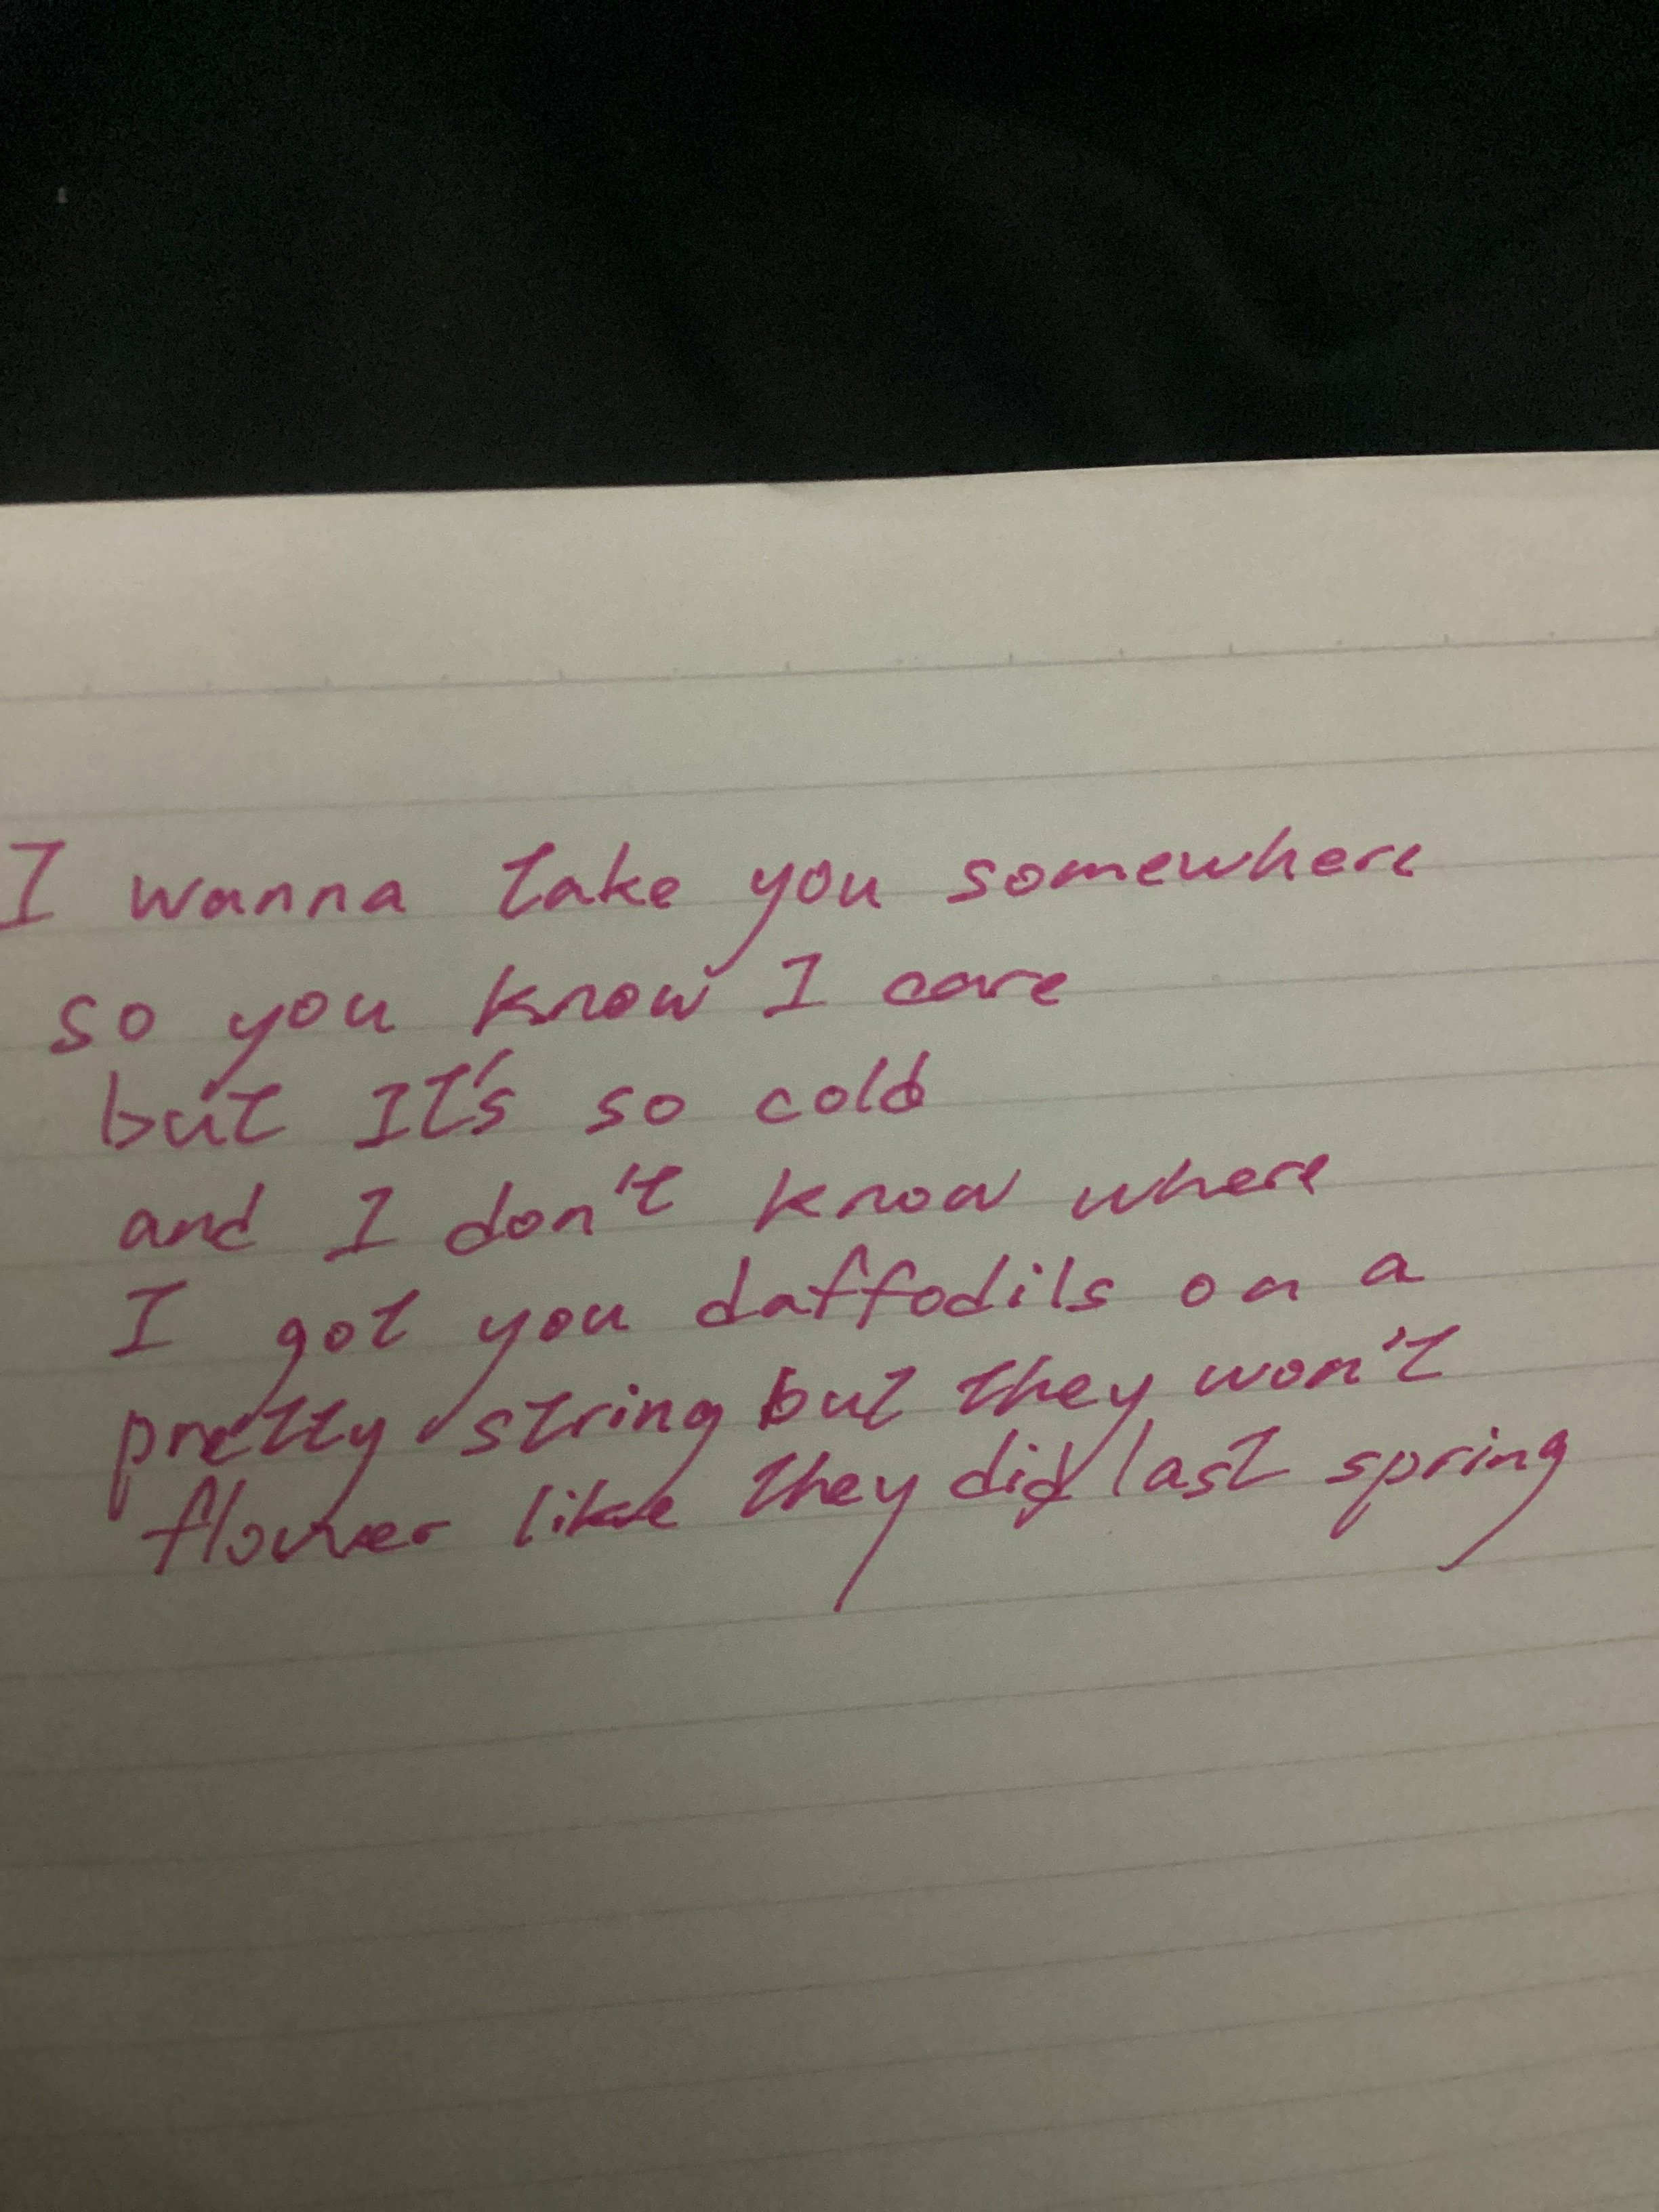 I wanna take you somewhere
so you know I care
but It's so cold
and I don't know where
I got you daffodils on a
pretty string but they won't
flower like they did last spring